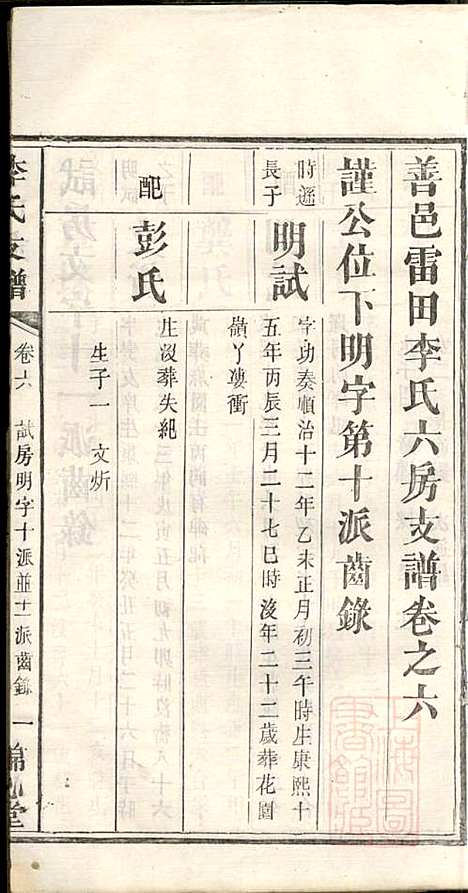 善邑雷田李氏六房支譜卷之六
謹公位下明字第十派齒錄
時遜長子
明試
字功奏順治十二年乙未正月初三午時生康熙十
五年丙辰三月二十七巳時沒年二十二歲葬花園
嶺丫凄衝
配
彭氏
生沒葬失紀
生子一 文炘
李氏支譜
卷六 試房明字十派並十一派齒錄 一